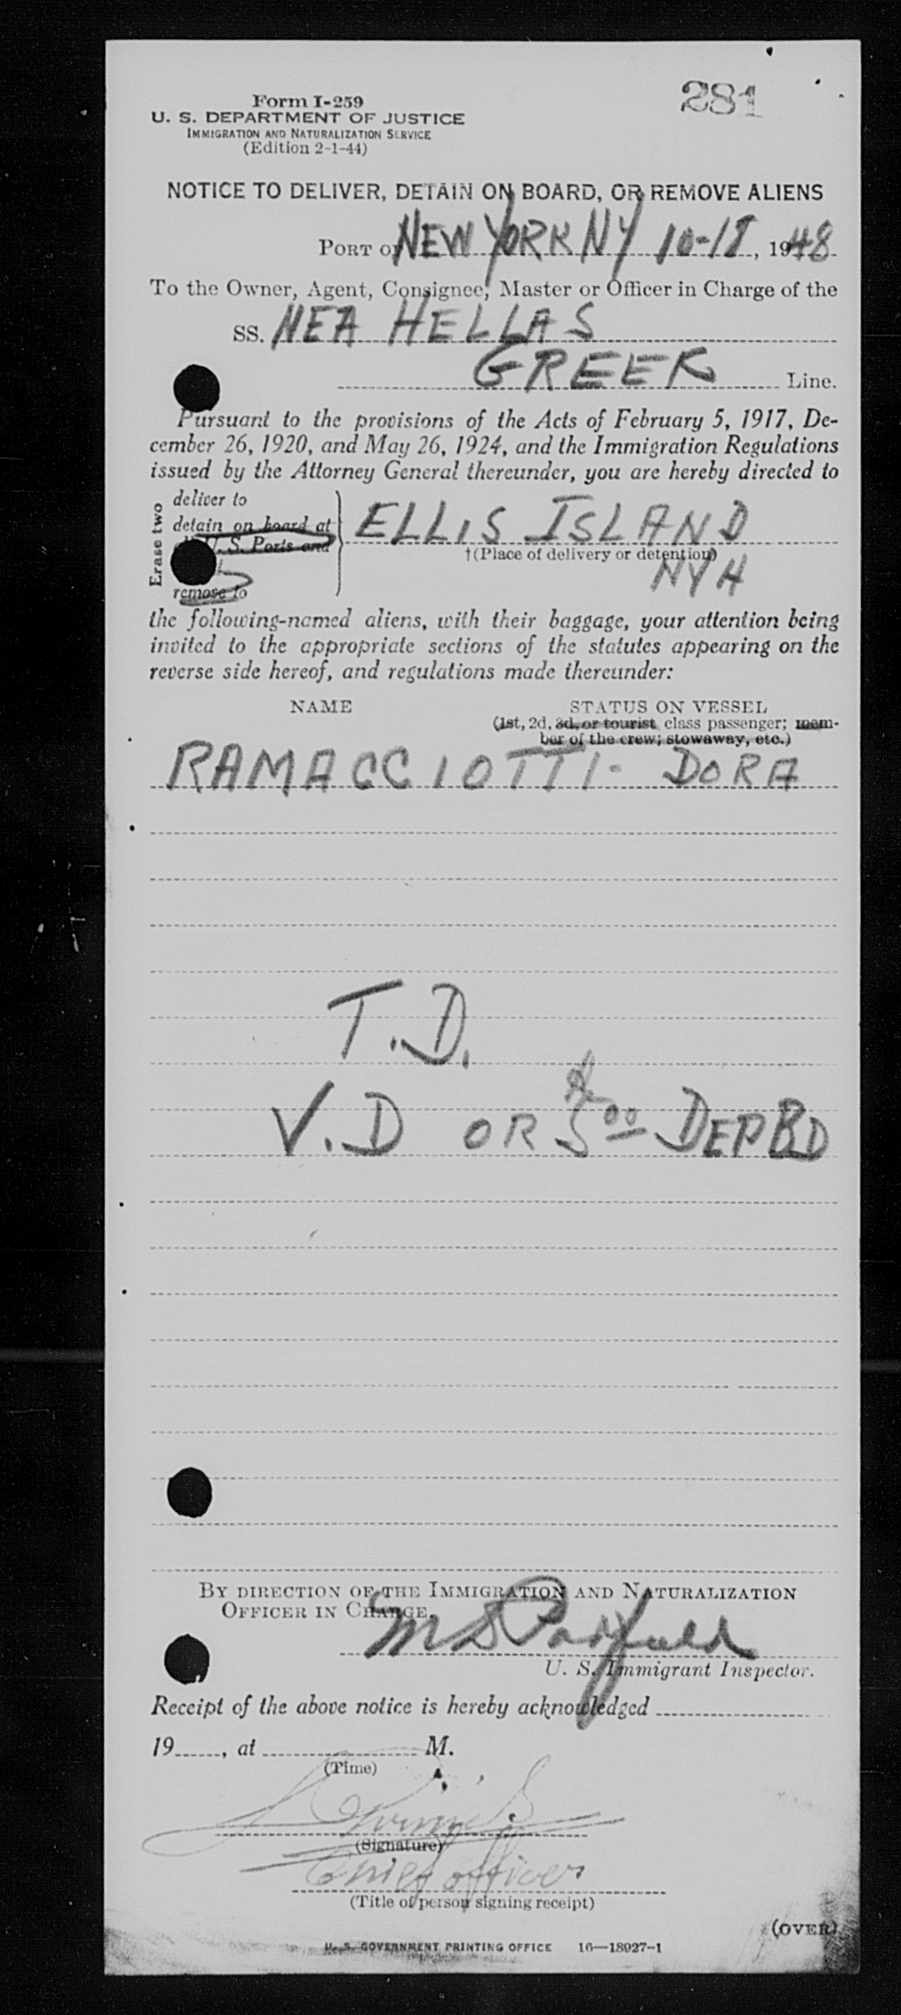 281
Form I-259
U. S. DEPARTMENT OF JUSTICE
IMMIGRATION AND NATURALIZATION SERVICE
(Edition 2-1-44)
NOTICE TO DELIVER, DETAIN ON BOARD, OR REMOVE ALIENS
PORT OF NEW YORK NY 10-18, 1948
To the Owner, Agent, Consignee, Master or Officer in Charge of the
SS. NEA HELLAS
GREEK Line.
Pursuant to the provisions of the Acts of February 5, 1917, De-
cember 26, 1920, and May 26, 1924, and the Immigration Regulations
issued by the Attorney General thereunder, you are hereby directed to
Erase two
deliver to
detain on board at ELLIS ISLAND
U. S. Ports and
†(Place of delivery or detention)
NYH
remove to
the following-named aliens, with their baggage, your attention being
invited to the appropriate sections of the statutes appearing on the
reverse side hereof, and regulations made thereunder:
NAME STATUS ON VESSEL
(1st, 2d, 3d, or tourist class passenger; mem-
ber of the crew; stowaway, etc.)
RAMACCIOTTI - DORA
T.D.
V.D OR $500 DEP BD
BY DIRECTION OF THE IMMIGRATION AND NATURALIZATION
OFFICER IN CHARGE.
U. S. Immigrant Inspector.
Receipt of the above notice is hereby acknowledged
19, at M.
(Time)
(Signature)
Chief officer
(Title of person signing receipt)
(OVER)
U. S. GOVERNMENT PRINTING OFFICE 16—18927-1